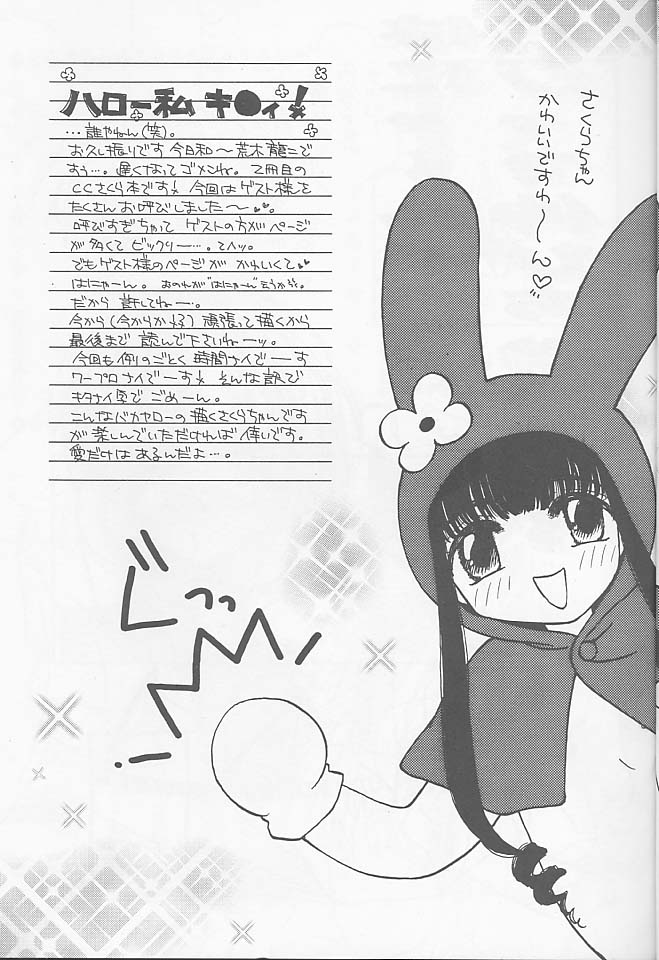 ハロー私 キ●ィ!
…誰やねん(笑)。
お久し振りです 今日和〜荒木龍一で
すぅ…。遅くなってゴメンね。2冊目の
CCさくら本です♪今回はゲスト様を
たくさんお呼びしました〜♥♥。
呼びすぎちゃって ゲストの方がページ
が多くて ビックリー…。てへッ。
でもゲスト様のページが かわいくて♥
はにゃーん。おのれが"はにゃーん"だろうか…。
だから 許してねー。
今から(今からかよ) 頑張って描くから
最後まで 読んで下さいねーッ。
今回も例のごとく 時間ナイでーす
ワープロナイでーす♪ そんな訳で
キタナイ字で ごめーん。
こんなバカヤローの描くさくらちゃんです
が 楽しんでいただければ 倖いです。
愛だけはあるんだよ…。
さくらちゃん
かわいいですわ〜〜ん♡
ぐっっ